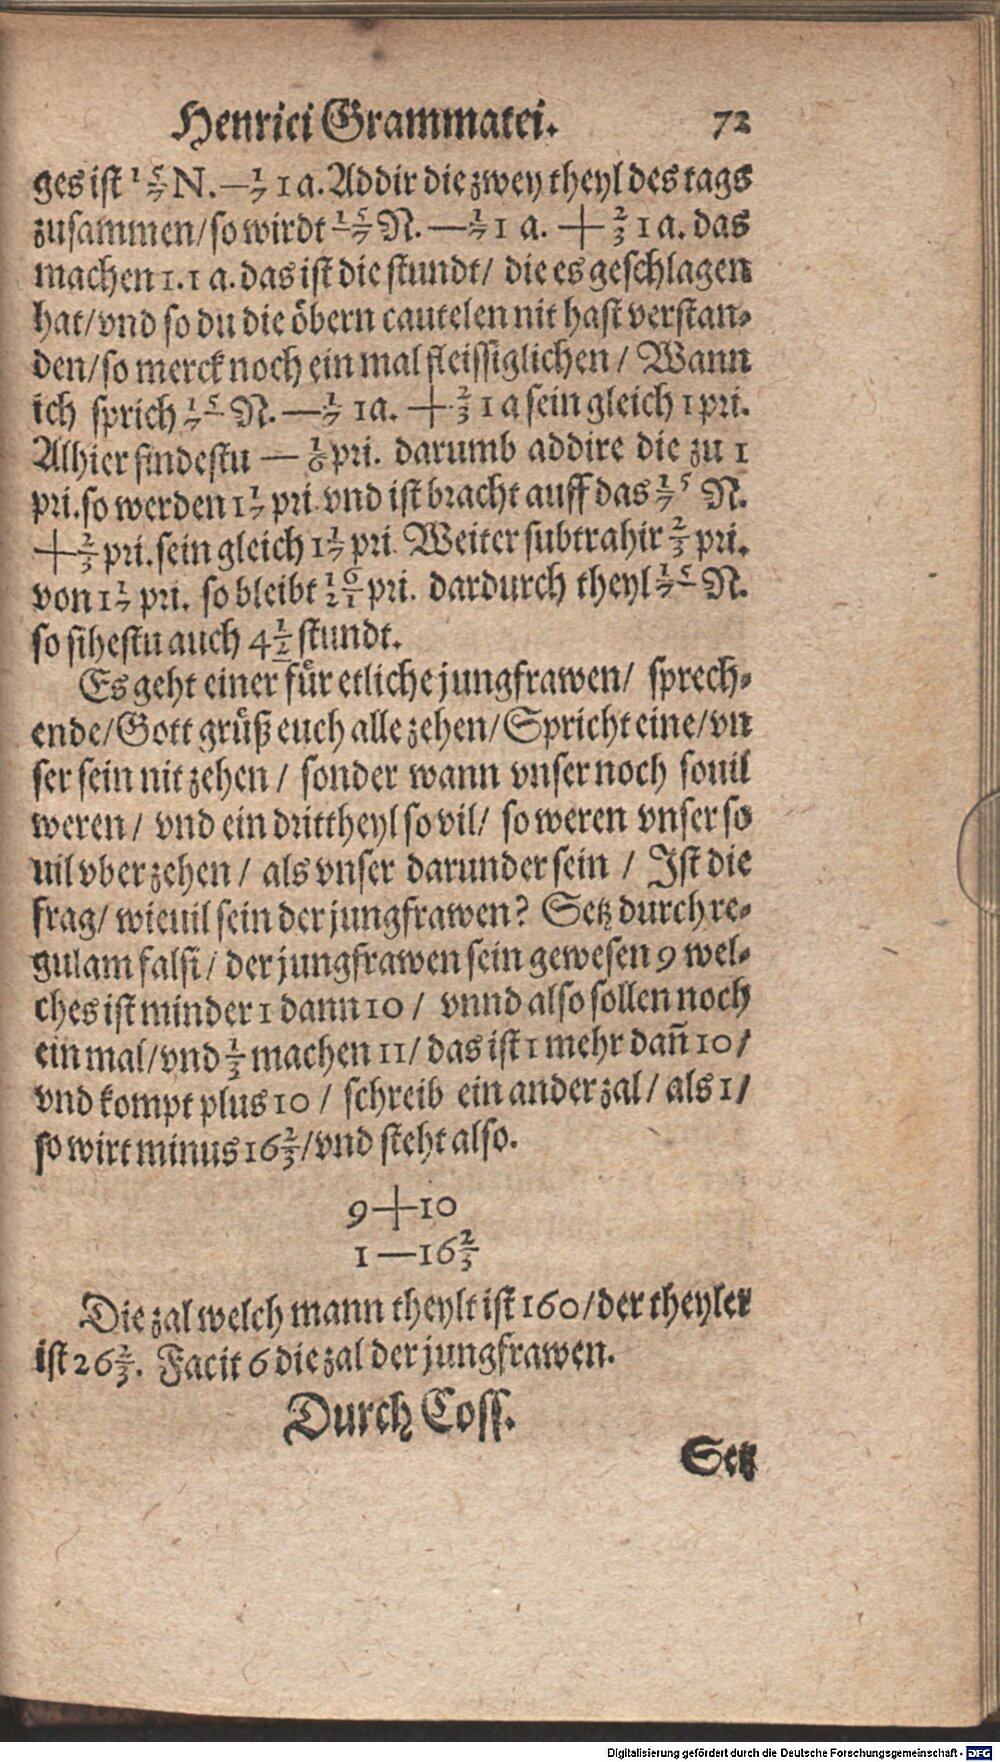 Henrici Grammatei. 72
ges ist 1 5/7 N. — 1/7 1 a. Addir die zwey theyl des tags
zusammen/ so wirdt 1 5/7 N. — 1/7 1 a. + 2/3 1 a. das
machen 1. 1 a. das ist die stundt/ die es geschlagen
hat/ vnd so du die öbern cautelen nit hast verstan-
den/ so merck noch ein mal fleissiglichen/ Wann
ich sprich 1 5/7 N. — 1/7 1a. + 2/3 1 a sein gleich 1 pri.
Alhier findestu — 1/6 pri. darumb addire die zu 1
pri. so werden 1 1/7 pri. vnd ist bracht auff das 1/7 5 N.
+ 2/3 pri. sein gleich 1 1/7 pri. Weiter subtrahir 2/3 pri.
von 1 1/7 pri. so bleibt 10/21 pri. dardurch theyl 1 5/7 N.
so sihestu auch 4 1/2 stundt.
Es geht einer für etliche jungfrawen/ sprech-
ende/ Gott grüß euch alle zehen/ Spricht eine/ vn
ser sein nit zehen/ sonder wann vnser noch souil
weren/ vnd ein drittheyl so vil/ so weren vnser so
uil vber zehen/ als vnser darunder sein/ Ist die
frag/ wieuil sein der jungfrawen? Setz durch re-
gulam falsi/ der jungfrawen sein gewesen 9 wel-
ches ist minder 1 dann 10/ vnnd also sollen noch
ein mal/ vnd 1/3 machen 11/ das ist 1 mehr dañ 10/
vnd kompt plus 10/ schreib ein ander zal/ als 1/
so wirt minus 16 2/3/ vnd steht also.
9+10
1—16 2/3
Die zal welch mann theylt ist 160/ der theyler
ist 26 2/3. Facit 6 die zal der jungfrawen.
Durch Coss.
Setz
Digitalisierung gefördert durch die Deutsche Forschungsgemeinschaft - DFG